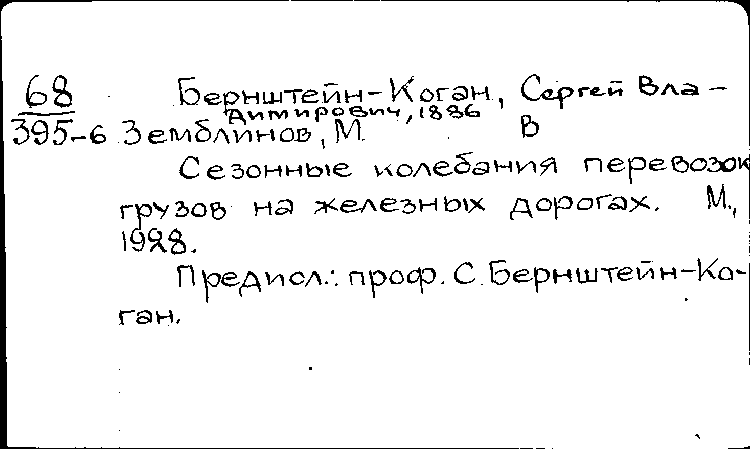 68 Бернштейн-Коган, Сергей Вла-
димирович, 1886
395-6 Земблинов, М. В
Сезонные колебания перевозок
грузов на железных дорогах. М.,
1928.
Предисл.: проф. С. Бернштейн-Ко-
ган.